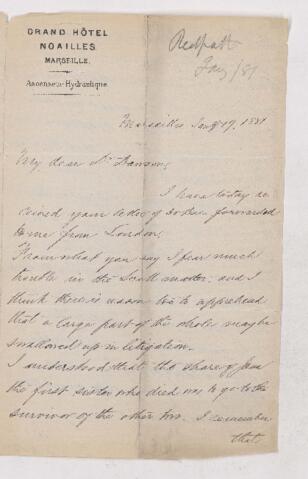 GRAND HÔTEL
NOAILLES
MARSEILLE.
Ascenseur-Hydraulique
Redpath
Jany/81
Marseilles Jany 17, 1881
My dear Dr Dawson,
I have to-day re
ceived your letter of 30 Dec. forwarded
to me from London.
From what you say I fear much
trouble in the Scott matter; and I
think there is reason too to apprehend
that a large part of the whole may be
swallowed up in litigation.
I understood that the share of
the first sister who died was to go to the
survivor of the other two. I remember
that